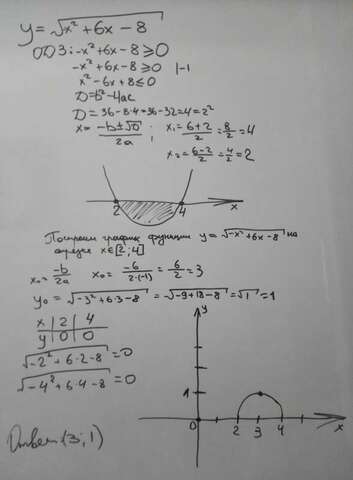 y=√x²+6x-8
ОДЗ: -x²+6x-8≥0
-x²+6x-8≥0 |·-1
x²-6x+8≤0
D=b²-4ac
D=36-8·4=36-32=4=2²
x=-b±√D/2a ; x₁=6+2/2=8/2=4
x₂=6-2/2=4/2=2
2 4 x
Построим график функции y=√-x²+6x-8 на
отрезке x∈[2;4]
x₀=-b/2a x₀=-6/2·(-1)=6/2=3
y₀=√-3²+6·3-8=√-9+18-8=√1=1
x | 2 | 4
y | 0 | 0
√-2²+6·2-8=0
√-4²+6·4-8=0
Ответ(3;1)
y
1
0 2 3 4 x